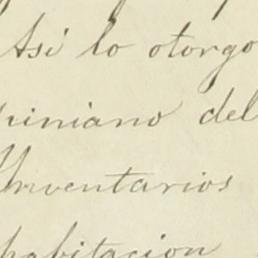 Asi lo otorgo
piniano del
Inventarios
habitacion